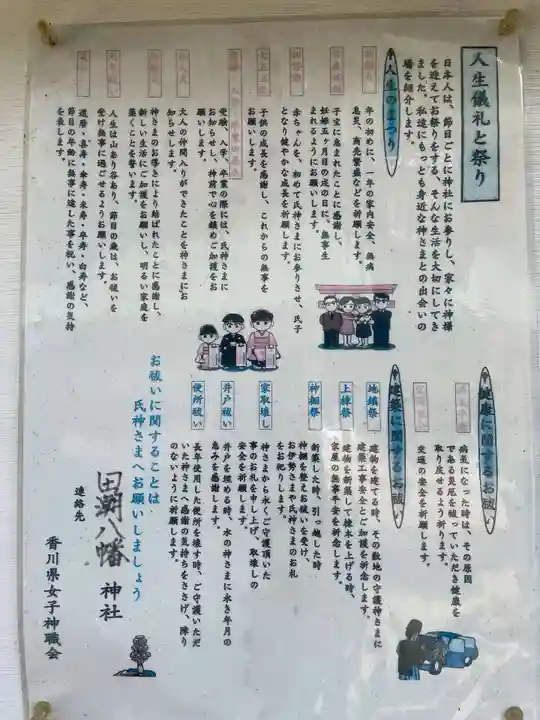 人生儀礼と祭り
日本人は、節目ごとに神社にお参りし、家々に神様
を迎えてお祭りをする、そんな生活を大切にしてき
ました。私達にもっとも身近な神さまとの出会いの
場を紹介します。
人生のまつり
年の初めに、一年の家内安全、無病
息災、商売繁盛などを祈願します。
子宝に恵まれたことに感謝し、
妊婦五ヶ月目の戌の日に、無事生
まれるようにお願いします。
赤ちゃんを、初めて氏神さまにお参りさせ、氏子
となり健やかな成長を祈願します。
七五三
子供の成長を感謝し、これからの無事を
お願いします。
受験、入学、卒業の際には、氏神さまに
お知らせし、神前で心を鎮めご加護をお
願いします。
大人の仲間入りができたことを神さまにお
知らせします。
神さまのお導きにより結ばれたことに感謝し、
新しい生活にご加護をお願いし、明るい家庭を
築くことを誓います。
人生は山あり谷あり、節目の歳は、お祓いを
受け無事に過ごせるようお願いします。
還暦・喜寿・傘寿・米寿・卒寿・白寿など、
節目の年齢に無事に達した事を祝い、感謝の気持
を表します。
健康に関するお祓い
病気になった時は、その原因
である災厄を祓っていただき健康を
取り戻せるよう祈ります。
交通の安全を祈願します。
建築に関するお祓い
地鎮祭
建物を建てる時、その敷地の守護神さまに
建築工事安全とご加護を祈念します。
上棟祭
建物を新築して棟木を上げる時、
家屋の無事平安を祈念します。
神棚祭
新築した時、引っ越した時
神棚を整えお祓いを受け
お伊勢さまや氏神さまのお札
をお祀りします。
家取壊し
神さまから永くご守護頂いた
事のお礼を申し上げ、取壊しの
安全を祈願します。
井戸祓い
井戸を埋める時、水の神さまに永き年月の
恵みを感謝します。
便所祓い
長年使用した便所を壊す時、ご守護いただ
いた神さまへ感謝の気持ちをささげ、障り
のないように祈願します。
お祓いに関することは
氏神さまへお願いしましょう
連絡先
田潮八幡 神社
香川県女子神職会